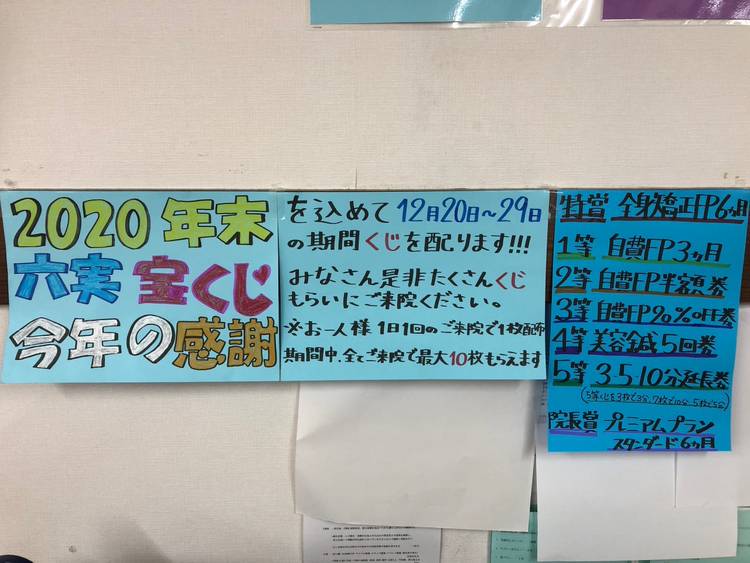 2020年末
六実宝くじ
今年の感謝
を込めて12月20日～29日
の期間くじを配ります!!!
みなさん是非たくさんくじ
もらいにご来院ください。
※お一人様1日1回のご来院で1枚配布
期間中、全てご来院で最大10枚もらえます
特賞 全身矯正FP6ヵ月
1等 自費FP3ヵ月
2等 自費FP半額券
3等 自費FP20%OFF券
4等 美容鍼5回券
5等 3.5.10分延長券
院長賞 プレミアムプラン
スタンダード6ヵ月